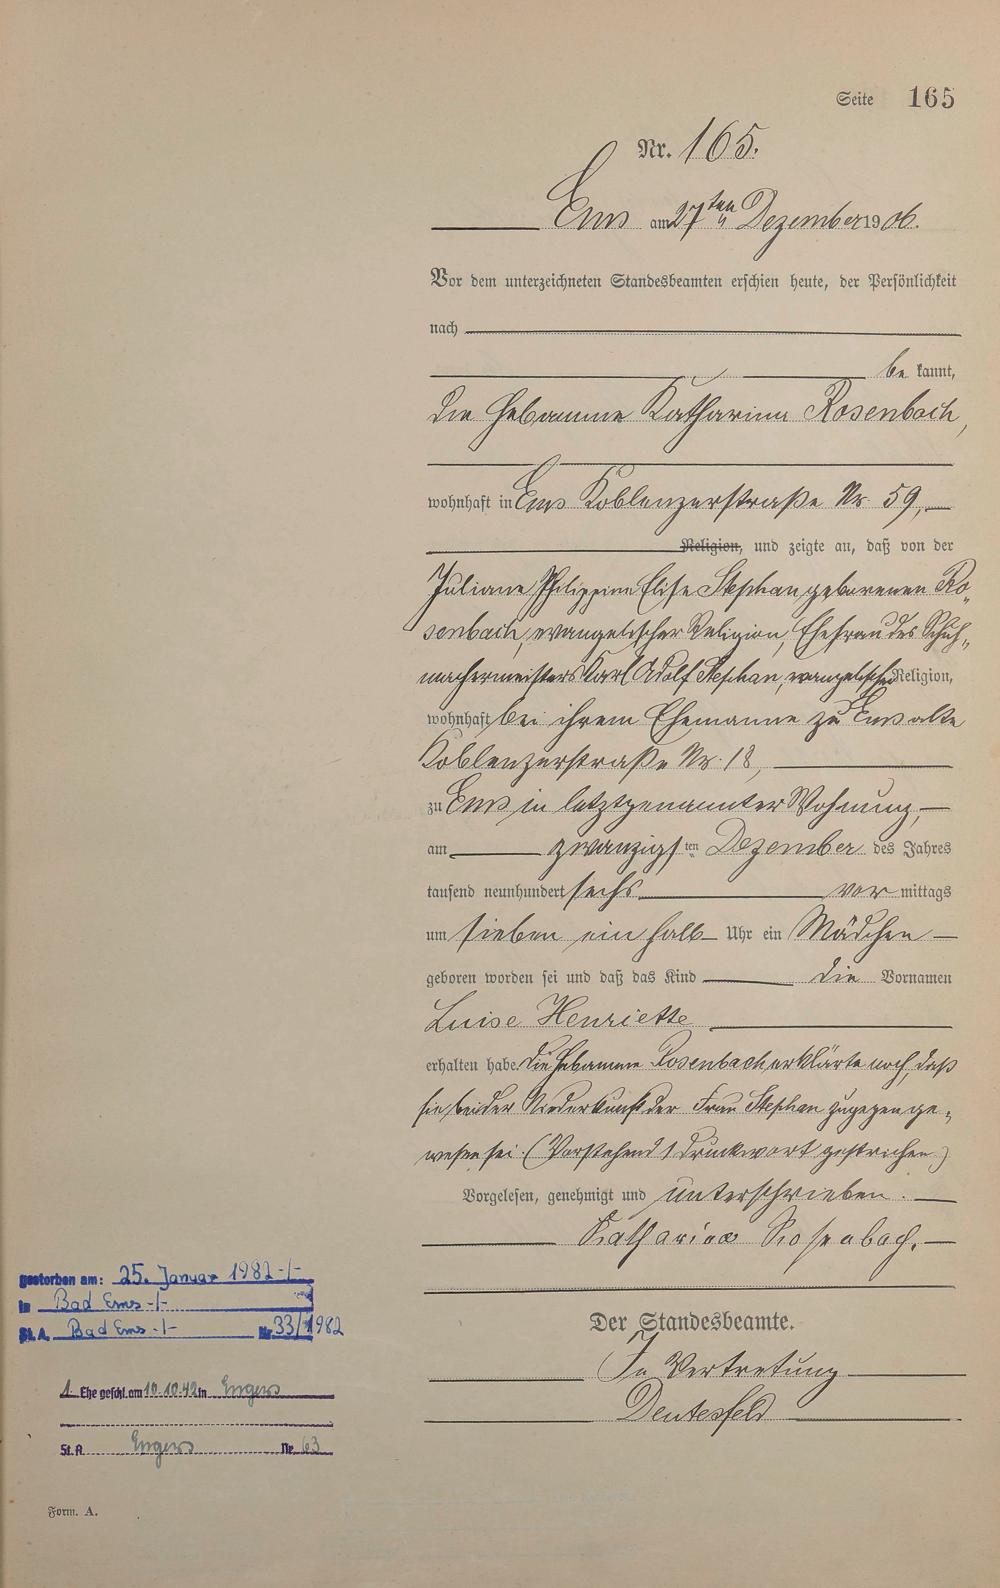 Seite 165
Nr. 165.
Ems am 27ten Dezember 1906.
Vor dem unterzeichneten Standesbeamten erschien heute, der Persönlichkeit
nach
be kannt,
die Hebamme Katharina Rosenbach,
wohnhaft in Ems Koblenzerstraße Nr. 59,
Religion, und zeigte an, daß von der
Juliane Philippine Elise Stephan geborenen Ro-
senbach, evangelischer Religion, Ehefrau des Schuh-
machermeisters Karl Adolf Stephan, evangelischer Religion,
wohnhaft bei ihrem Ehemanne zu Ems alte
Koblenzerstraße Nr. 18,
zu Ems in letztgenannter Wohnung,
am zwanzigsten Dezember des Jahres
tausend neunhundert sechs vor mittags
um sieben ein halb Uhr ein Mädchen
geboren worden sei und daß das Kind die Vornamen
Luise Henriette
erhalten habe. Die Hebamme Rosenbach erklärte noch, daß
sie bei der Niederkunft der Frau Stephan zugegen ge-
wesen sei. (Vorstehend 1 Druckwort gestrichen.)
Vorgelesen, genehmigt und unterschrieben.
Katharina Rosenbach.
Der Standesbeamte.
In Vertretung
gestorben am: 25. Januar 1982 -/-
in Bad Ems -/-
St. A. Bad Ems -/- Nr 33/1982
1. Ehe geschl. am 10.10.42 in Engers
St. A. Engers Nr. 63
Form. A.